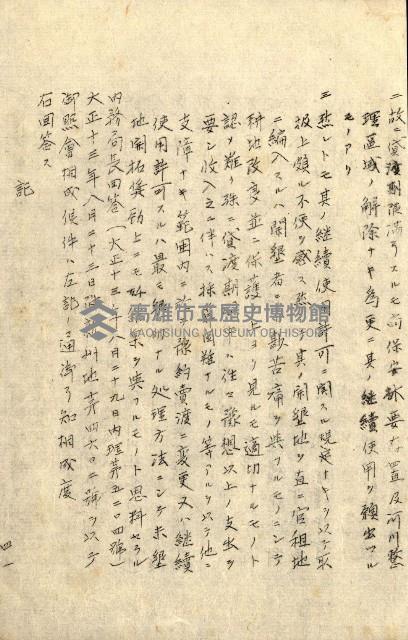 二故ニ貸渡期限満了スルモ前保安林要存置及河川整
理区域ノ解除ナキ為更ニ其ノ継続使用ヲ願出ツル
モノアリ
三 然レトモ其ノ継続使用許可ニ関スル規定ナキヲ以テ取
扱上頗ル不便ヲ感ス然ルニ其ノ開墾地ヲ直ニ官租地
ニ編入スルハ開墾者ニ苦痛ヲ与フルモノニシテ
耕地改変並ニ保護上ヨリ見ルモ適切ナルモノト
認メ難ク殊ニ貸渡期 ハ往々予想以上ノ支出ヲ
要シ収入之ニ伴ハス採 困難ナルモノ等アルヲ以テ他ニ
支障ナキ範囲内ニ 予約売渡ニ変更又ハ継続
使用許可スルハ最モ ナル処理方法ニシテ未墾
地開拓奨励上ニモ好 ヲ与フルモノト思料セラル
内務局長回答(大正十三年八月二十九日内理第五二〇四號)
大正十三年八月二十三日 州地第四六〇二號ヲ以テ
御照會相成候件ハ左記ノ通御了知相成度
右回答ス
記
四一
高雄市立歷史博物館
KAOHSIUNG MUSEUM OF HISTORY